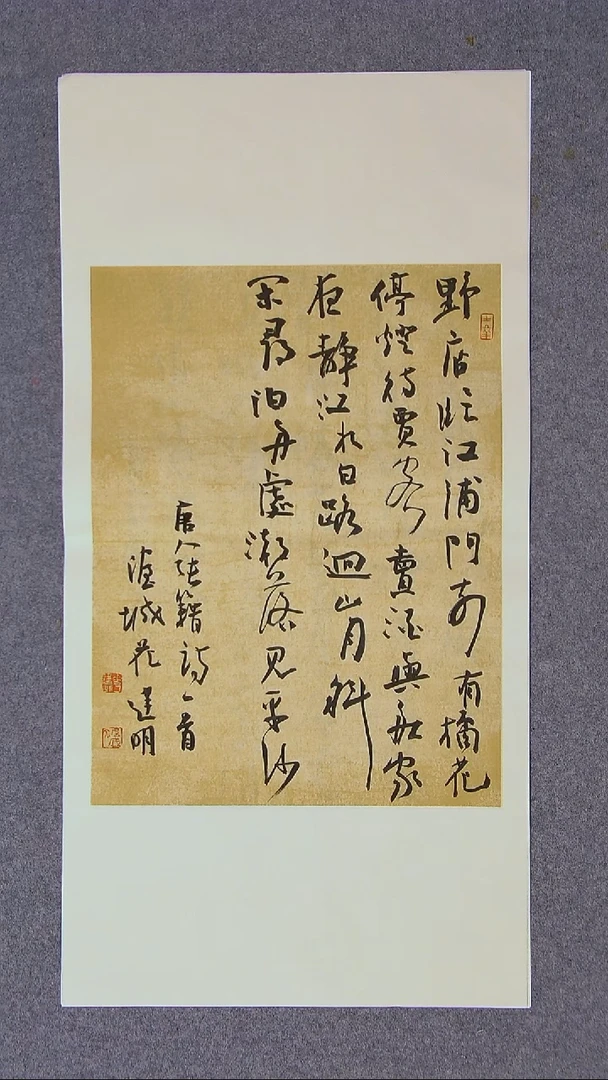 野店临江浦門前有橘花
停燈待賈客賣酒與漁家
夜静江水白路迴山月斜
閑尋泊舟處潮落見平沙
唐人張籍詩一首
城建明